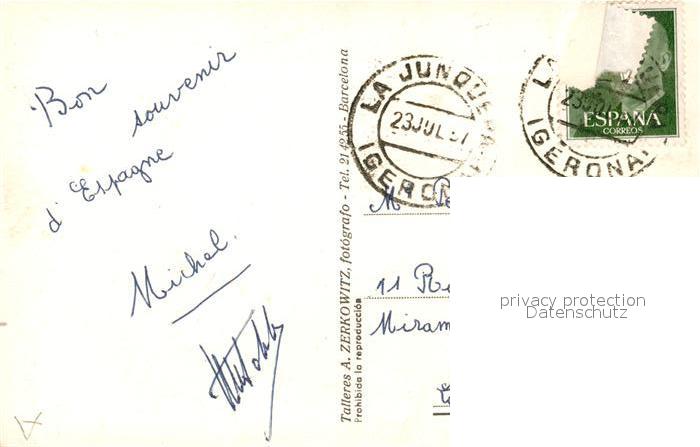 Bon souvenir
d'Espagne
Michel.
Talleres A. ZERKOWITZ, fotógrafo - Tel. 214255 - Barcelona
Prohibida la reproducción
LA JUNQUERA
23 JUL 57
(GERONA)
ESPAÑA
CORREOS
LA
23
(GERONA)
M
11
Miram
privacy protection
Datenschutz